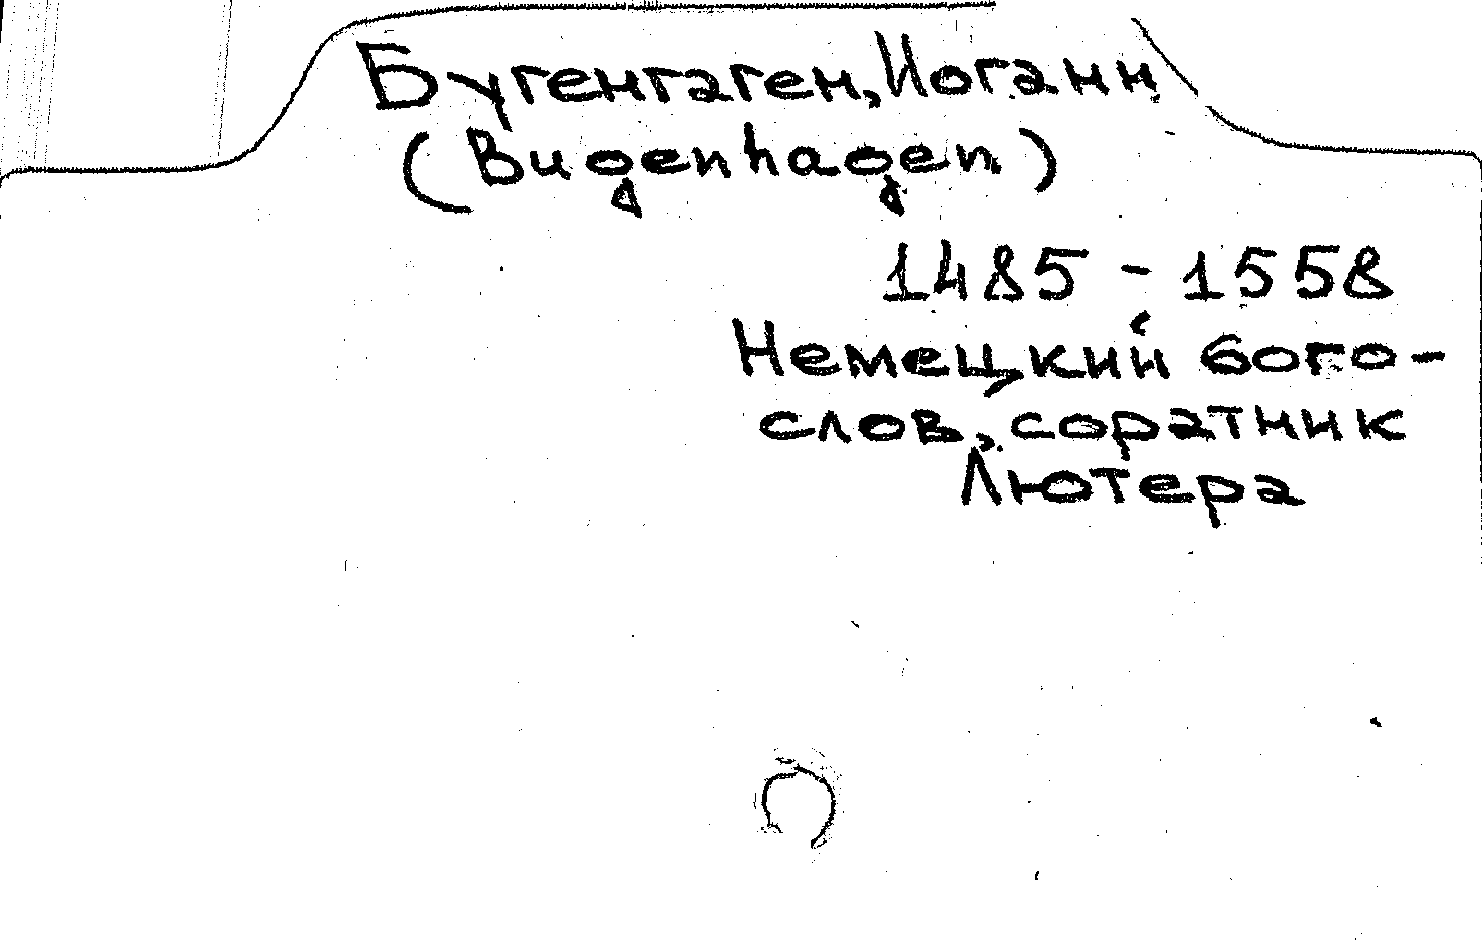 Бугенгаген, Иоганн
(Bugenhagen)
1485 - 1558
Немецкий бого-
слов, соратник
Лютера